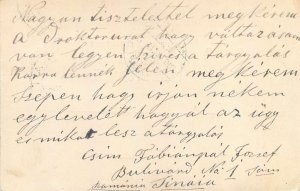 Nagyon tisztelettel meg kérem
a Doktorurat hogy váltazásom
van legyen szives a tárgyalás
lennék jelen meg kérem
szépen hogy irjon nekem
egy levelett hagyál az ügy
és mikor lesz a tárgyalás
Csim Fábiánpál Jozsef
Bulivard No 1 Sám
Románia Sinaia